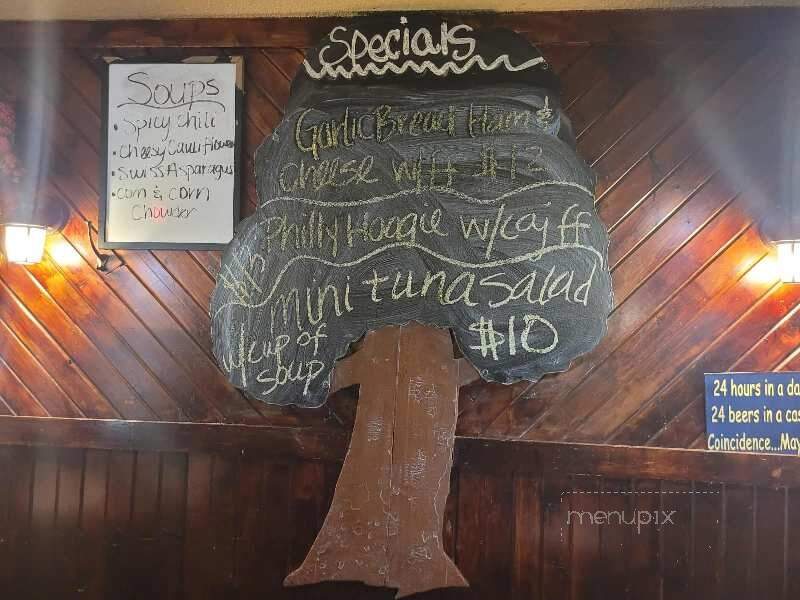 Soups
• Spicy Chili
• Cheesy Cauliflower
• Swiss Asparagus
• Corn & Corn
Chowder
Specials
Garlic Bread Ham &
Cheese w/ff $12
Philly Hoagie w/caj ff
mini tuna salad
w/cup of
soup
$10
24 hours in a da
24 beers in a cas
Coincidence...May
menupix